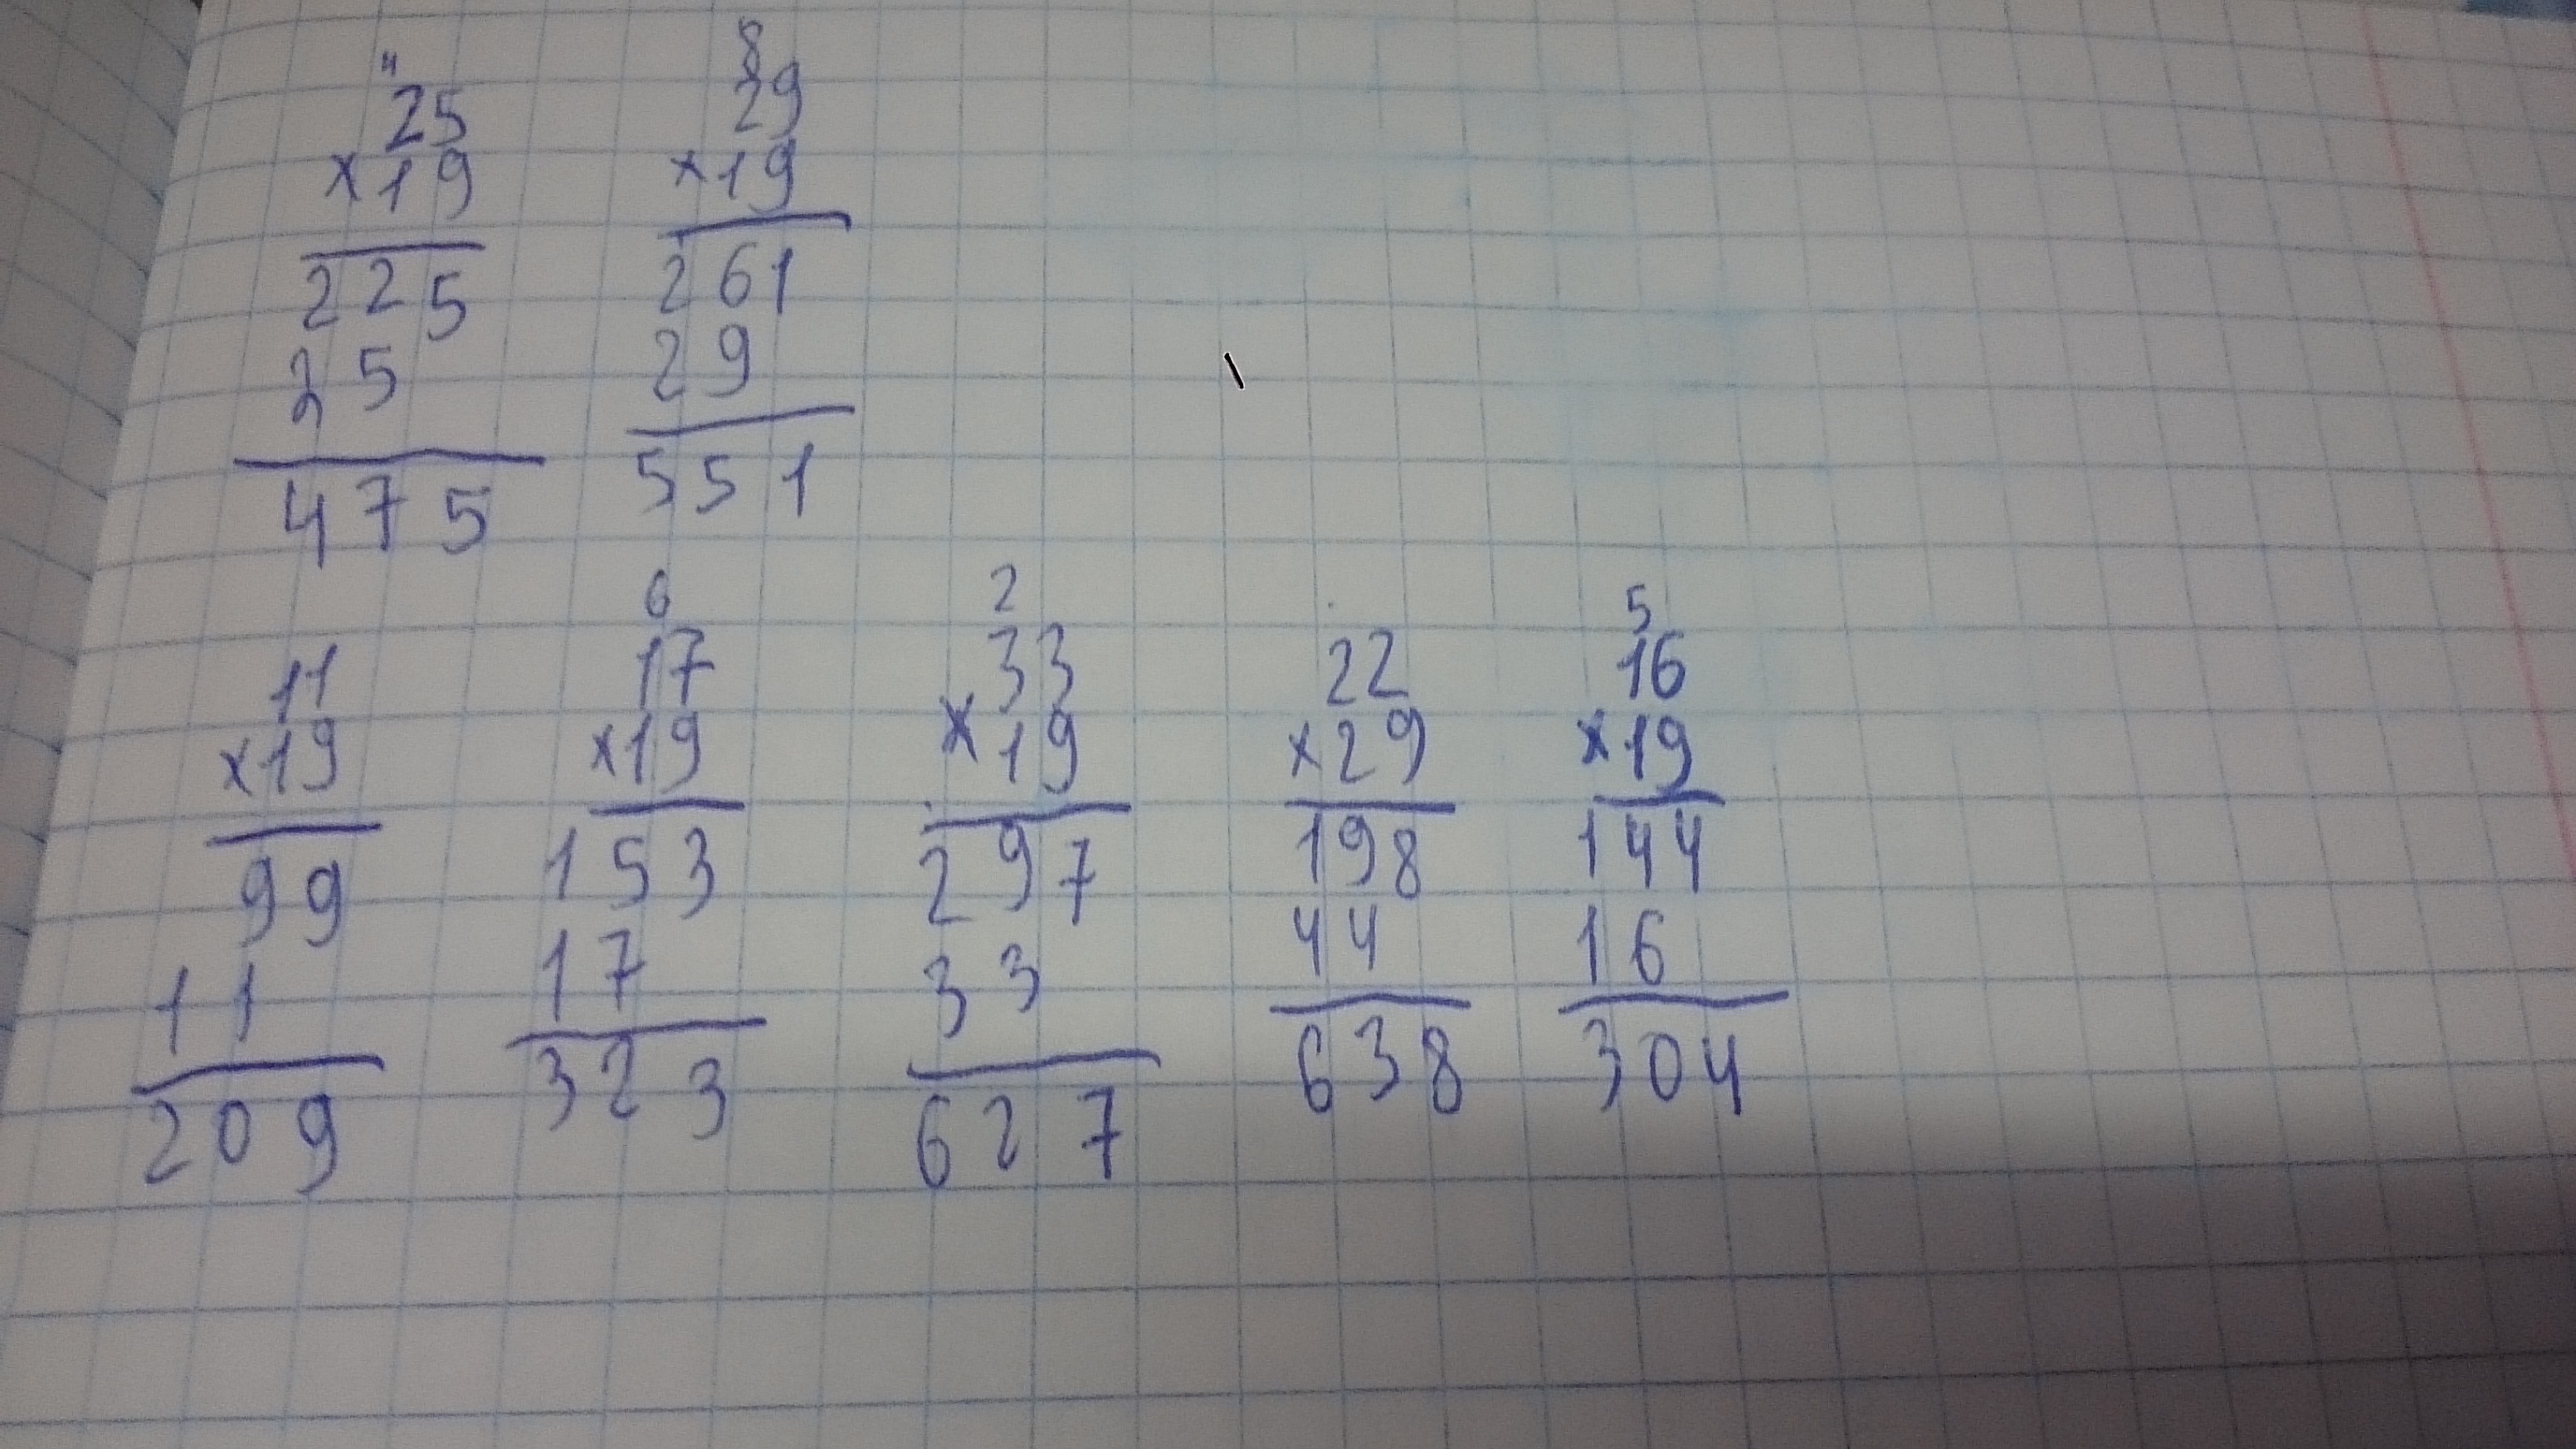 4 8
25 29
×19 ×19
225 261
25 29
475 551
6 2 5
11 17 33 22 16
×19 ×19 ×19 ×29 ×19
99 153 297 198 144
11 17 33 44 16
209 323 627 638 304